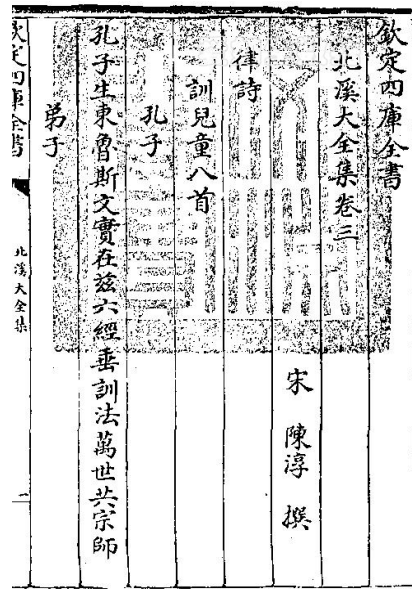 欽定四庫全書
北溪大全集卷三
宋 陳淳 撰
律詩
訓兒童八首
孔子
孔子生東魯斯文實在兹六經垂訓法萬世共宗師
弟子
欽定四庫全書
北溪大全集
一